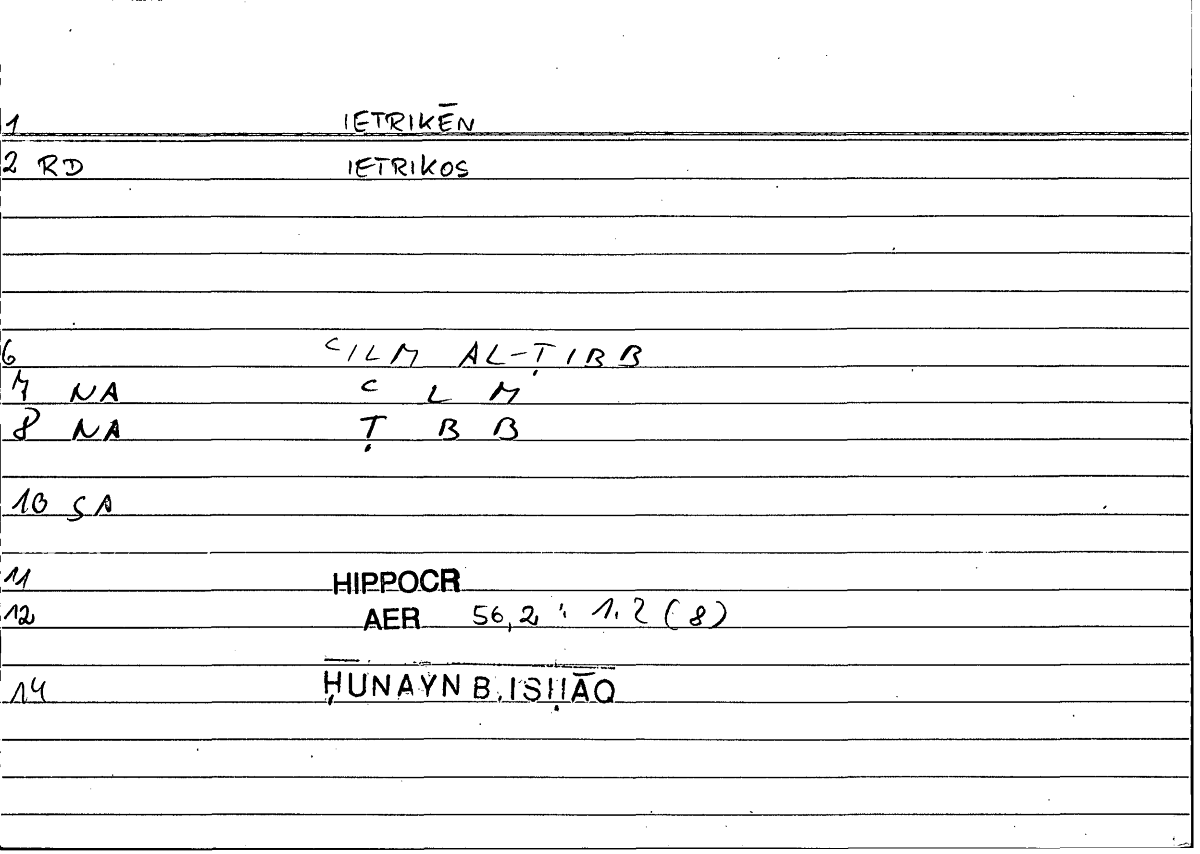 1 IETRIKĒN
2 RD IETRIKOS
6 ʿILM AL-ṬIBB
7 NA ʿ L M
8 NA Ṭ B B
10 SA
11 HIPPOCR
12 AER 56,2 : 1.2 (8)
14 ḤUNAYN B. ISḤĀQ